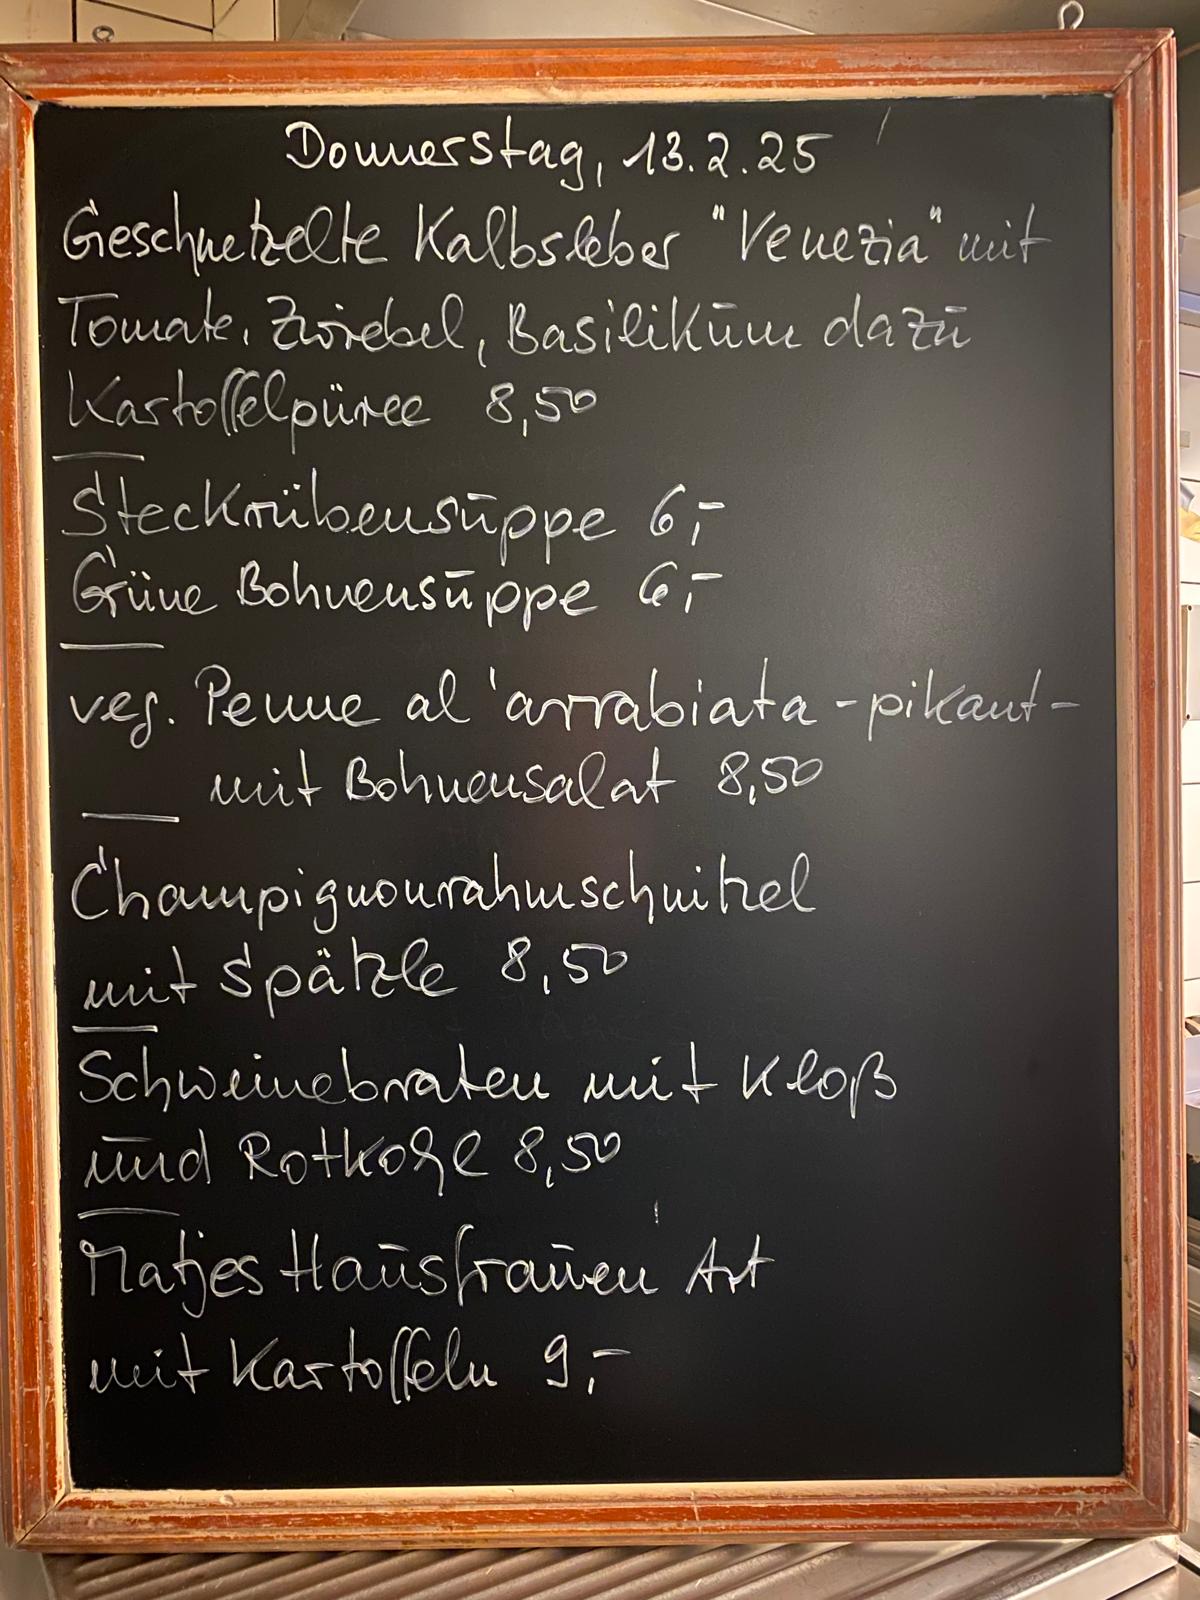 Donnerstag, 13.2.25
Geschnetzelte Kalbsleber "Venezia" mit
Tomate, Zwiebel, Basilikum dazu
Kartoffelpüree 8,50
Steckrübensuppe 6,-
Grüne Bohnensuppe 6,-
veg. Penne al 'arrabiata - pikant -
mit Bohnensalat 8,50
Champignonrahmschnitzel
mit Spätzle 8,50
Schweinebraten mit Kloß
und Rotkohl 8,50
Matjes Hausfrauen Art
mit Kartoffeln 9,-